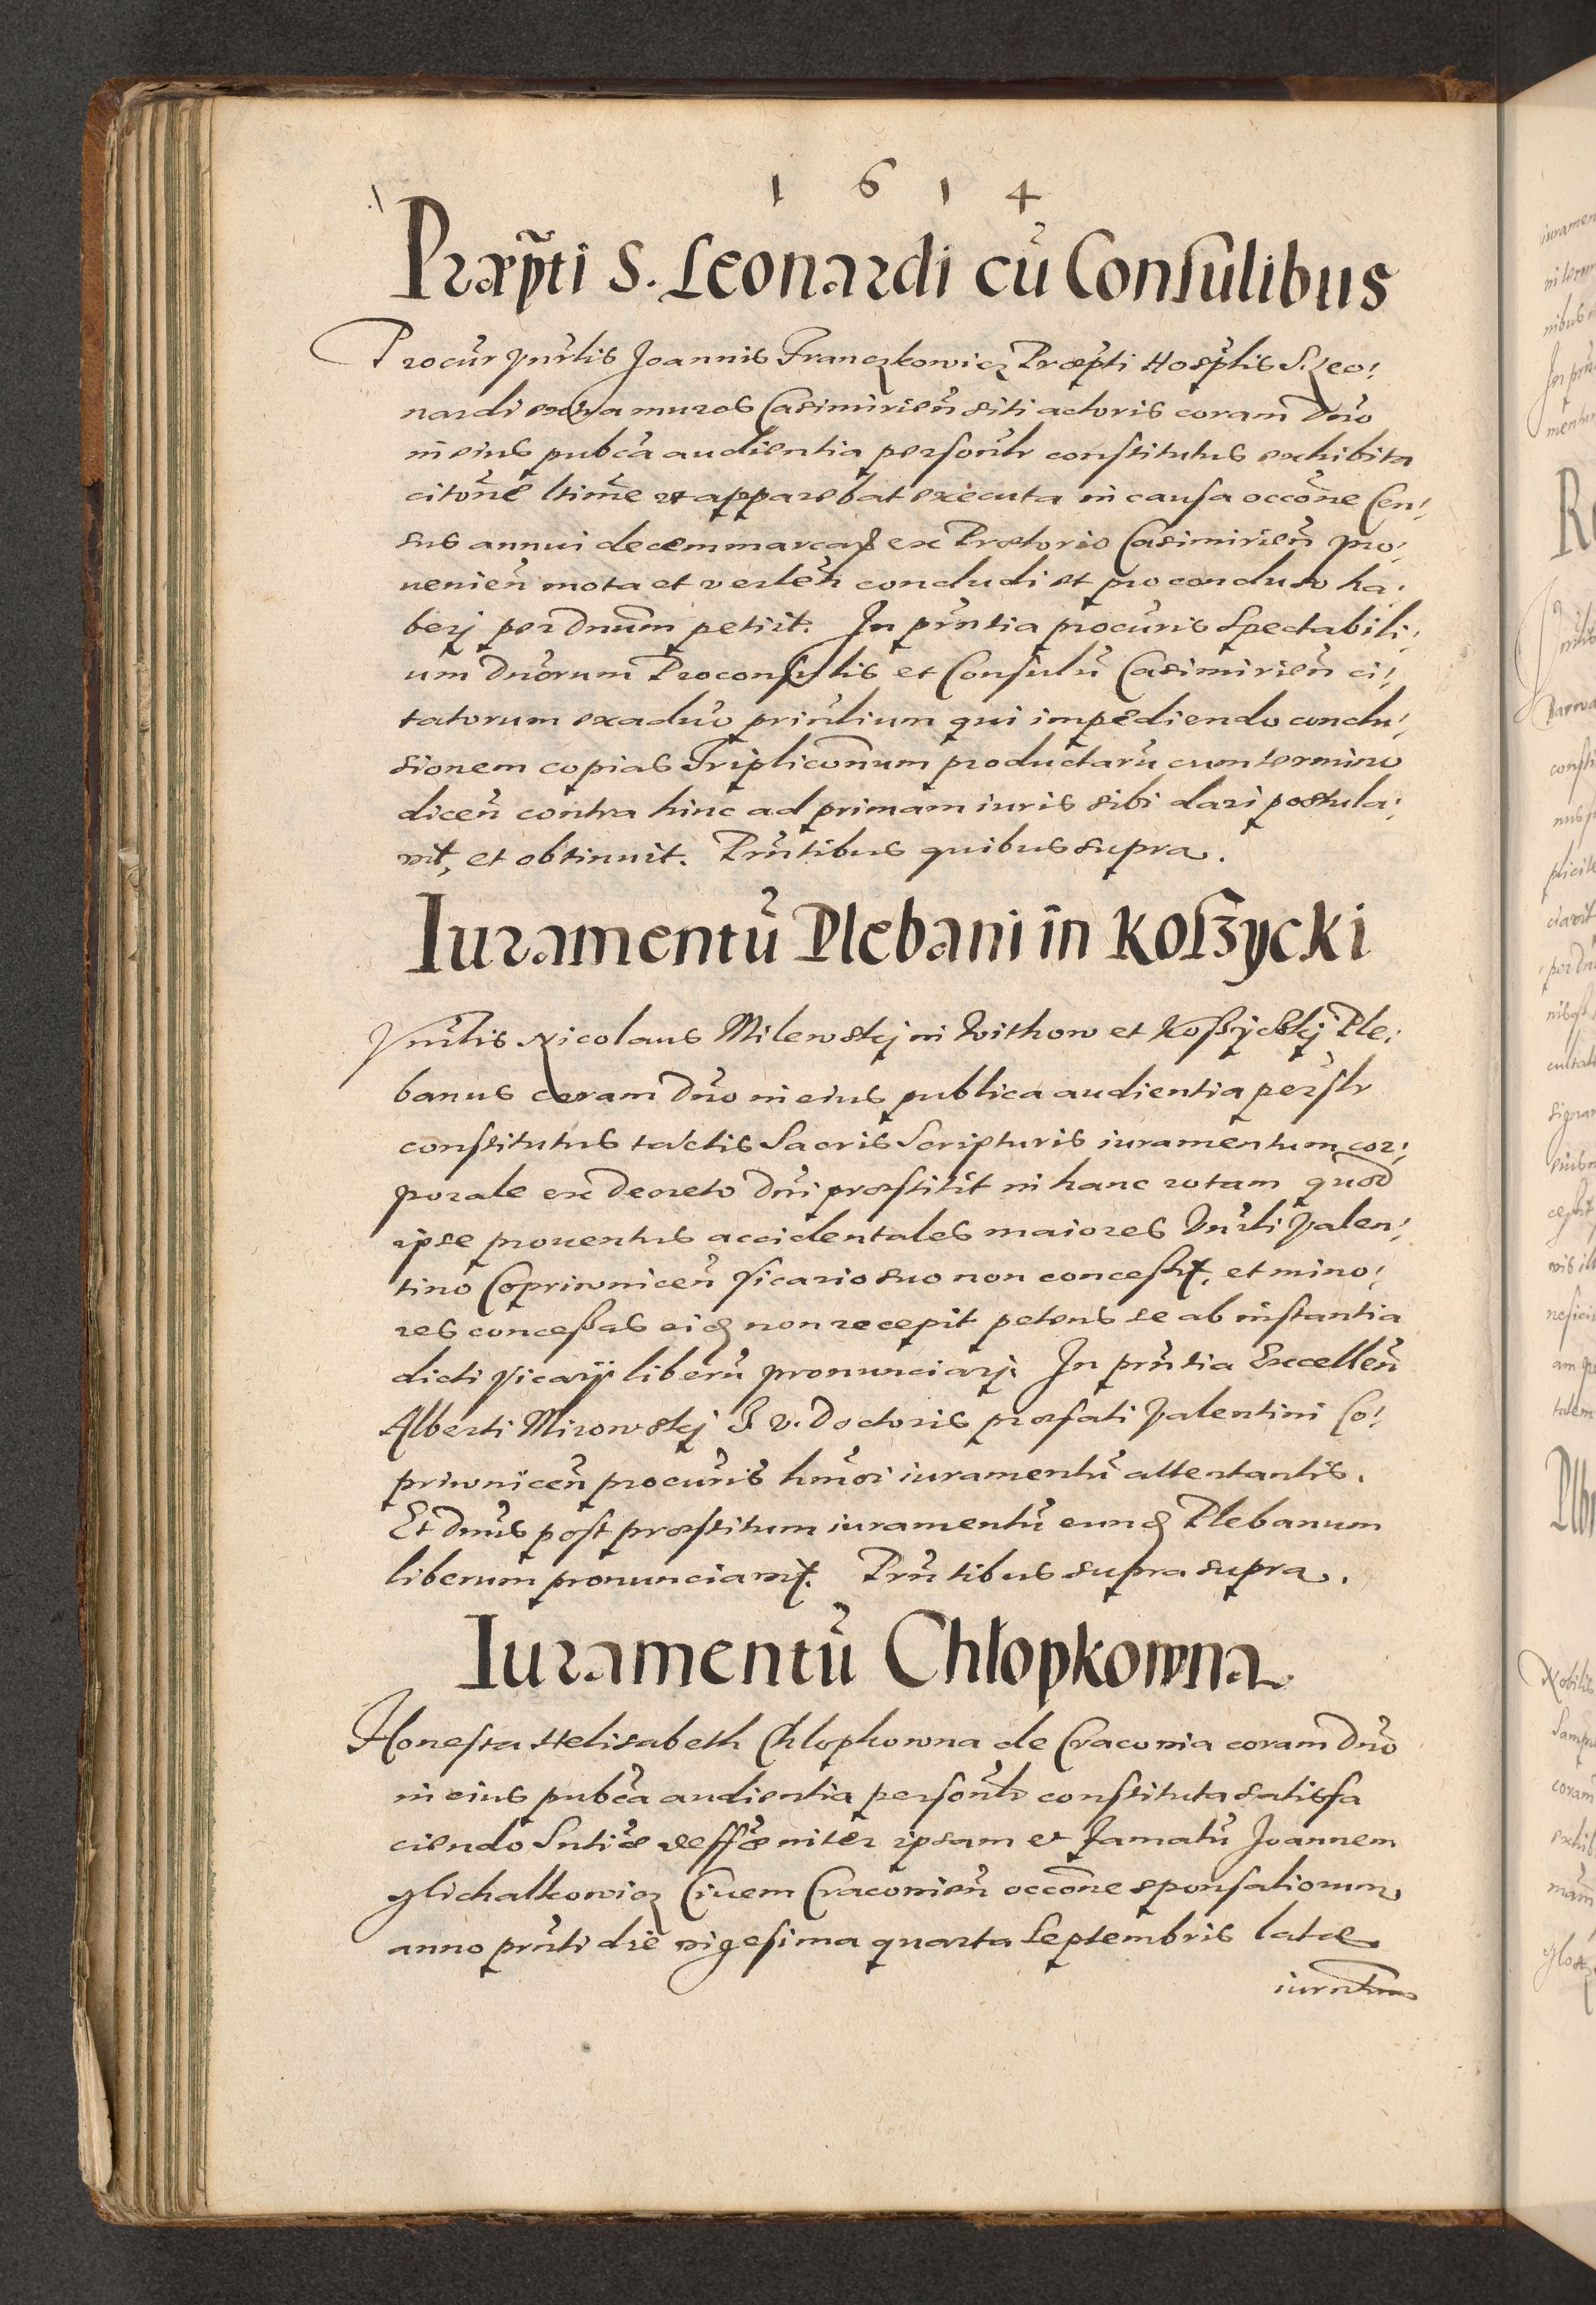 1 6 1 4
Præpti S. Leonardi cũ Consulibus
Procur vnrlis Joannis Franczkowicz Præpti Hosptlis S. Leo:
nardi extra muros Casimirien siti actoris coram Dno
in eius pubca audientia personlr constitutus exhibita
citone ltime vt apparebat executa in causa occone Cen:
sus annui decem marcar ex Prætorio Casimirien pro:
uenien mota et verten concludi et pro concluso ha:
berj per Dnum petiit. In prntia procuris Spectabili:
um Dnorum Proconsulis et Consulũ Casimirien ci:
tatorum ex aduo prinlium qui impediendo conclu:
sionem copias Tripliconum productarũ cum termino
dicen contra hinc ad primam iuris sibi dari postula:
uit, et obtinuit. Prntibus quibus supra.
Iuramentũ Plebani in Koszycki
Vnrlis Nicolaus Milewskj in Withow et Koszyczkj Ple:
banus coram Dno in eius publica audientia perslr
constitutus tactis Sacris Scripturis iuramentum cor:
porale ex decreto Dni præstitit in hanc rotam quod
ipse prouentus accidentales maiores Vnrli Valen:
tino Copriwnicen Vicario suo non concessit, et mino:
res concessas eid non recepit petens se ab instantia
dicti Vicarij liberũ pronunciarj. In prntia Excellen
Alberti Mirowskj J. V. Doctoris præfati Valentini Co:
priwnicen procuris hmoi iuramentũ attentantis.
Et Dnus post præstitum iuramentũ eund Plebanum
liberum pronunciauit. Prntibus supra supra.
Iuramentũ Chłopkowna
Honesta Helisabeth Chlopkowna de Cracovia coram Dno
in eius pubca audientia personlr constituta satisfa
ciendo Sntiæ deffæ inter ipsam et famatũ Joannem
Glichalkowicz Ciuem Cracouien occone sponsaliorum
anno prnti die vigesima quarta Septembris latæ
iurntum